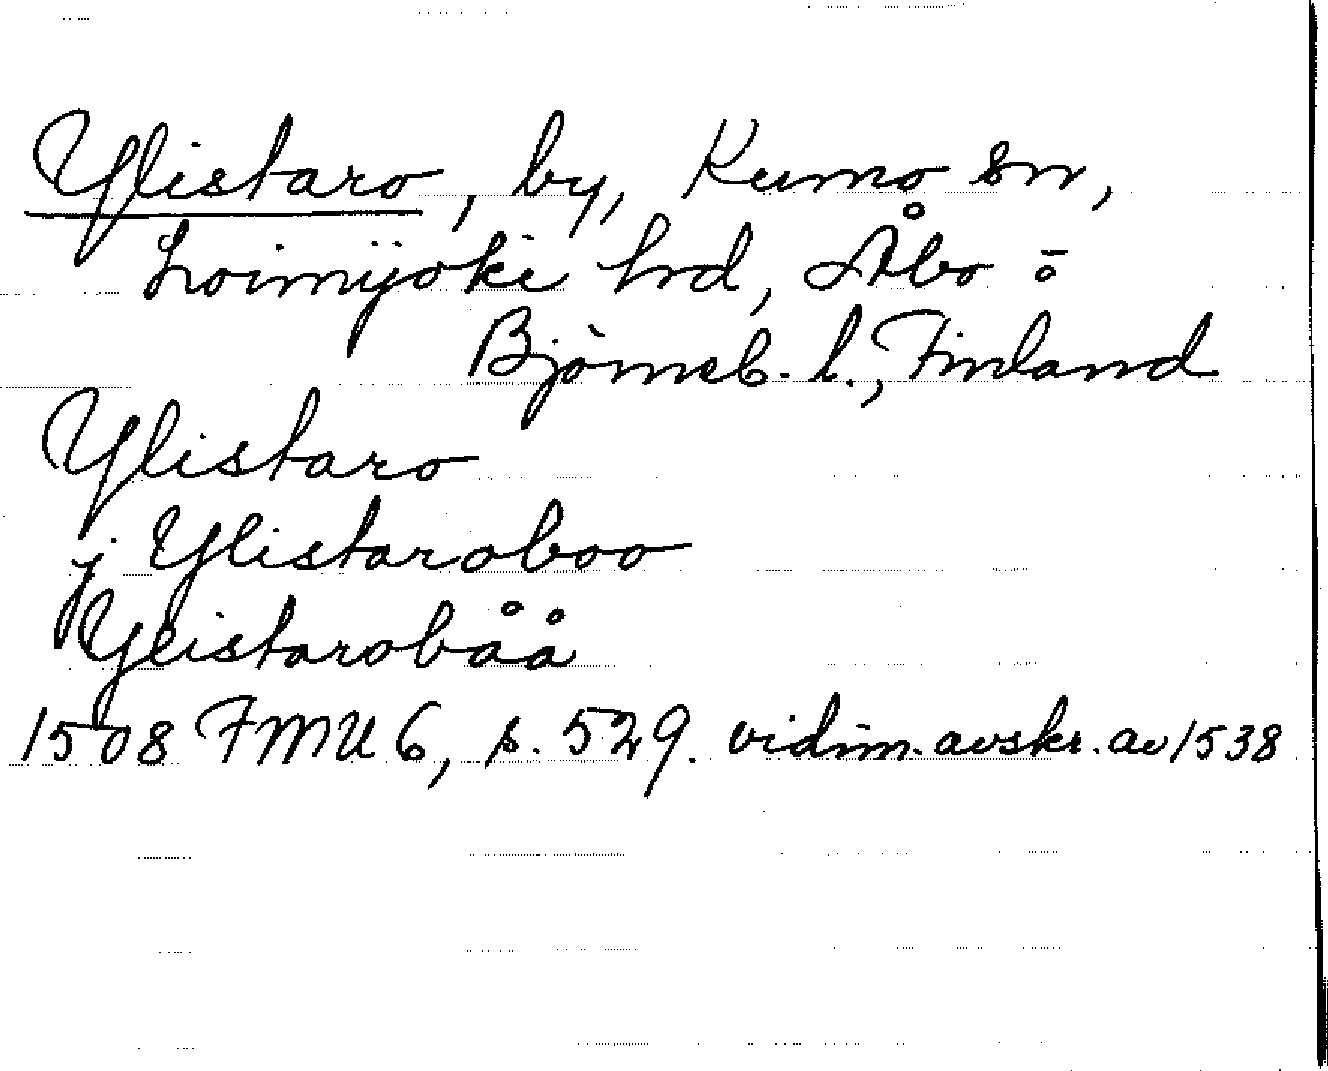 Ylistaro, by, Kumo sn,
Loimijoki hd, Åbo o
Björneb. l., Finland
Ylistaro
j Ylistaroboo
Ylistarobåå
1508 FMU 6, s. 529. vidim. avskr. av 1538